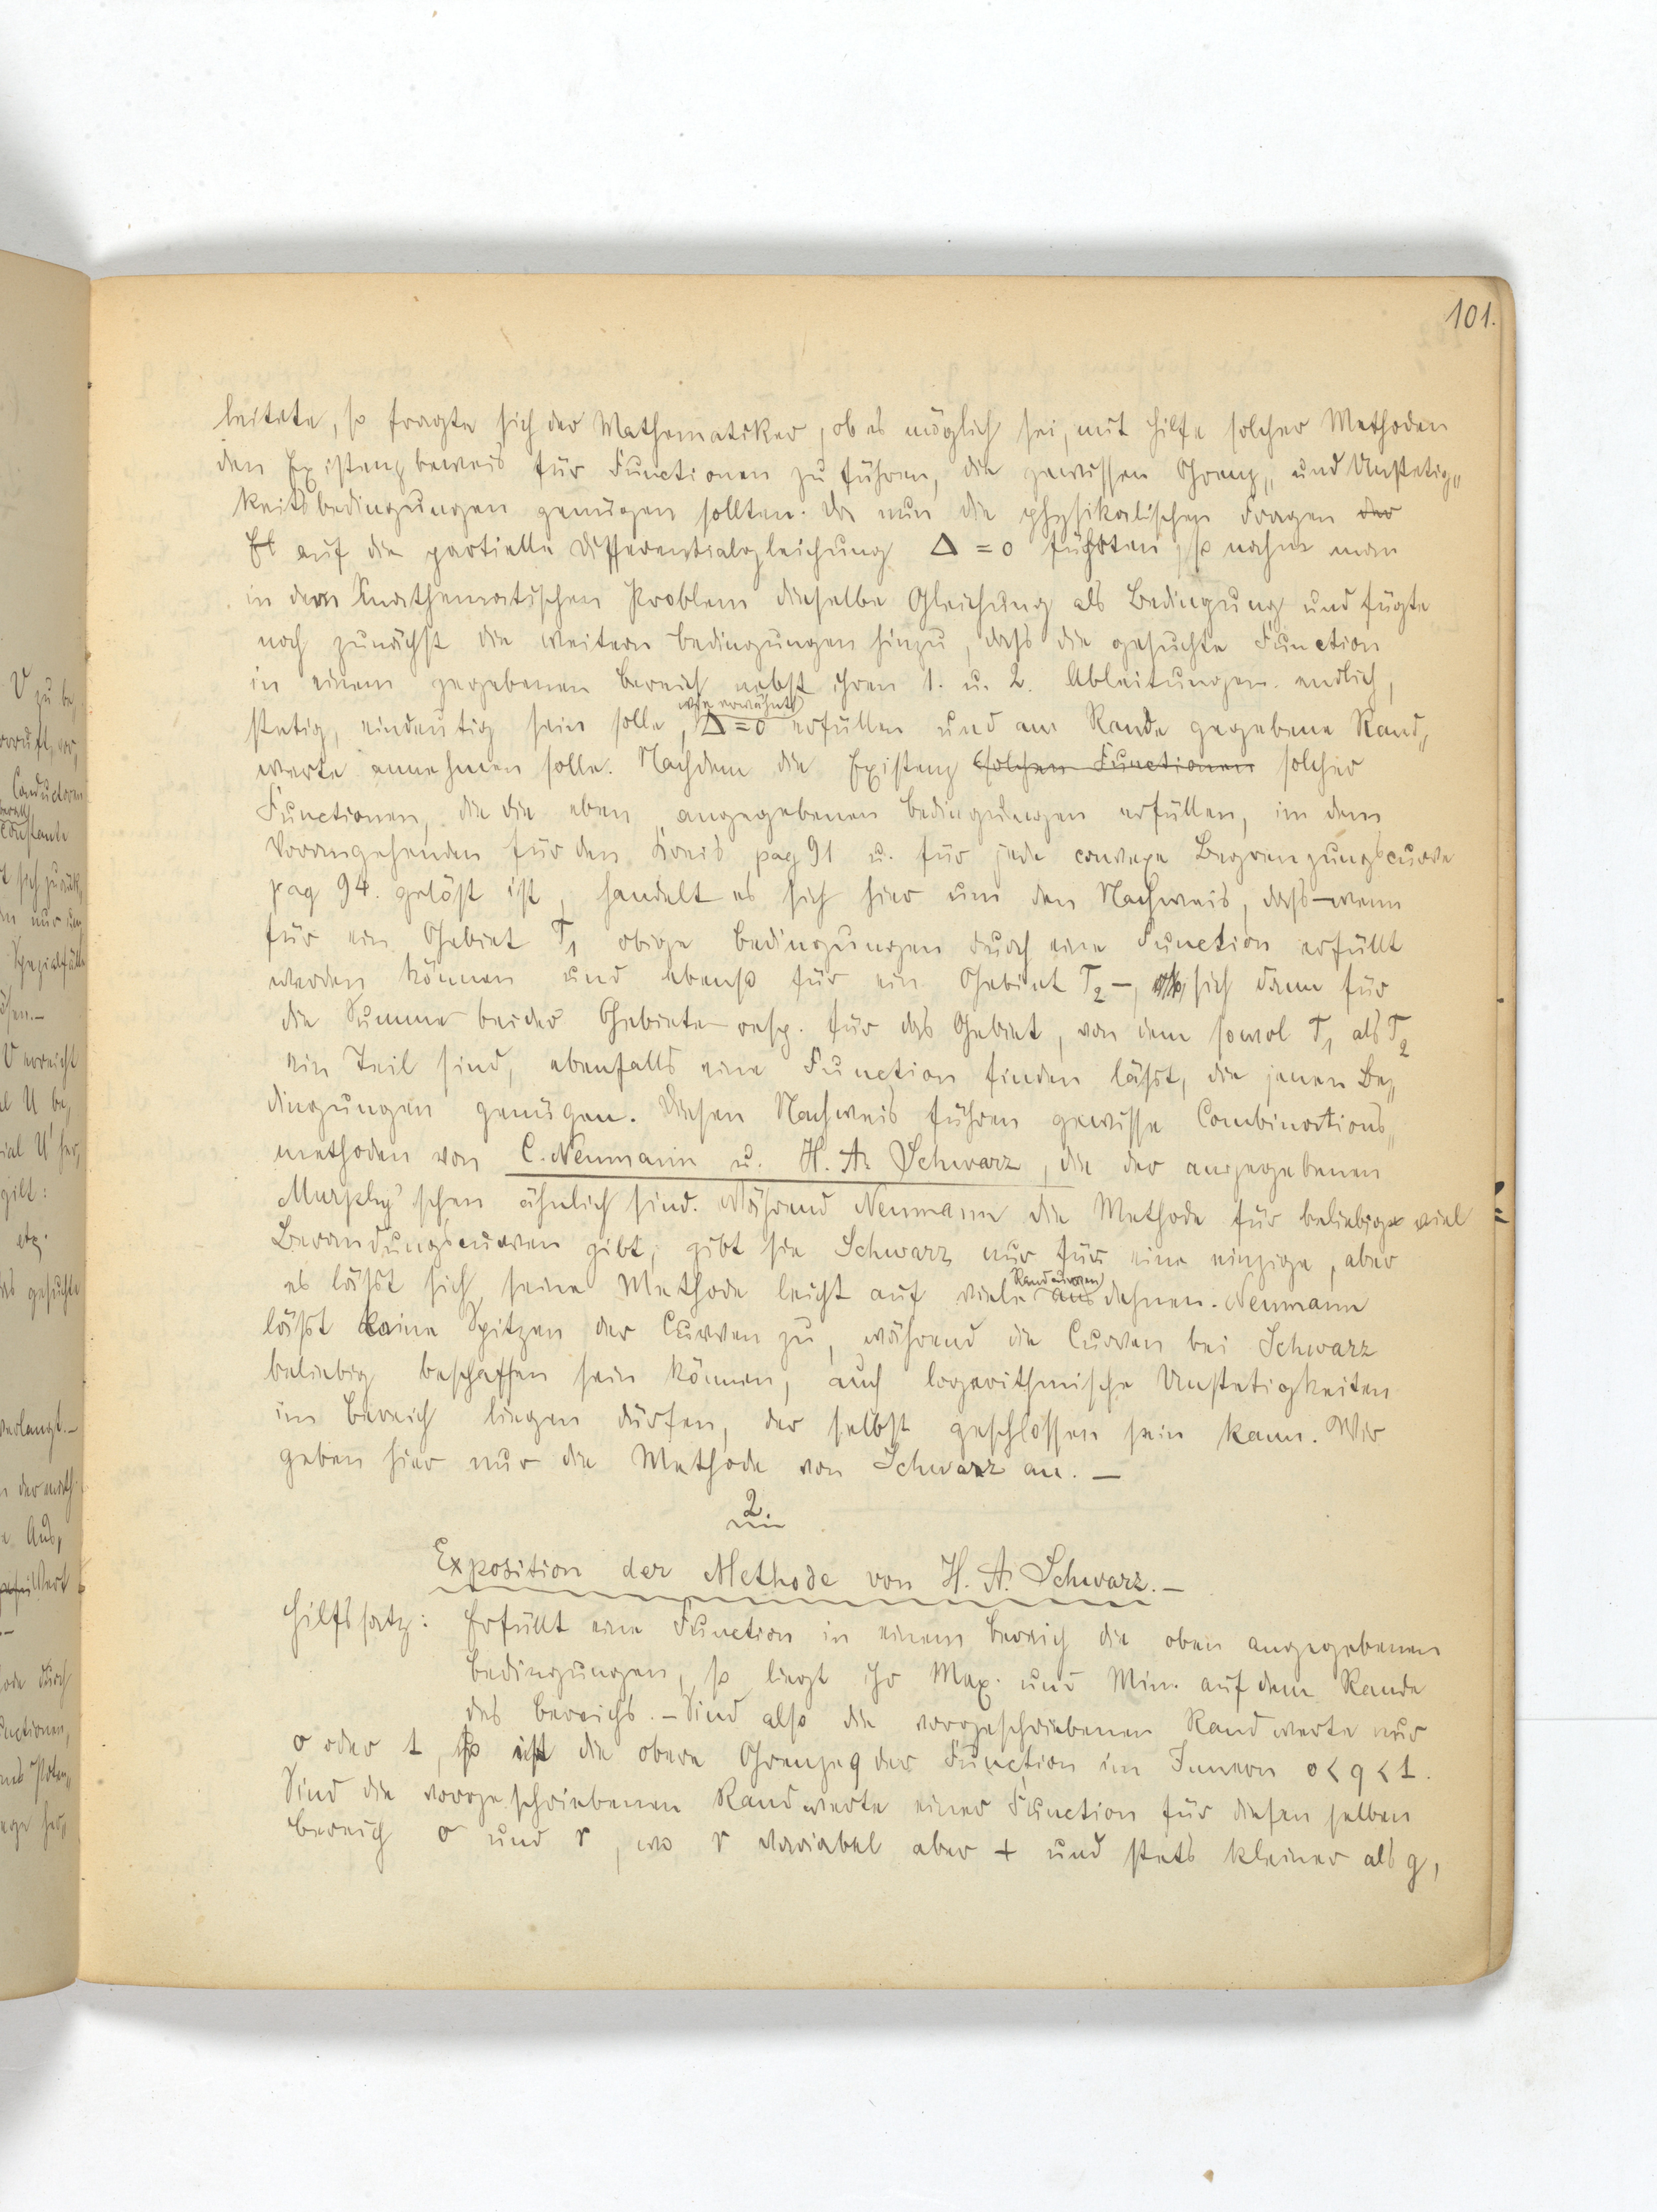 101.
leitete, so fragte sich der Mathematiker, ob es möglich sei, mit Hilfe solcher Methoden
den Existenzbeweis für Functionen zu führen, die gewissen Grenz„ und Unstetig„
keitsbedingungen genügen sollten. Da nun die physikalischen Fragen der
auf die partielle Differentialgleichung Δ = 0 führten, so nahm man
in dem mathematischen Problem dieselbe Gleichung als Bedingung und fügte
noch zunächst die weitern Bedingungen hinzu, dass die gesuchte Function
in einem gegebenen Bereich nebst ihren 1. u. 2. Ableitungen endlich,
wie erwähnt
stetig, eindeutig sein solle, Δ = 0 erfüllen und am Rande gegebene Rand„
werte annehmen solle. Nachdem die Existenz solchen Functionen solcher
Functionen, die die eben angegebenen Bedingungen erfüllen, im dem
Vorangehenden für den Kreis pag 91 u. für jede convexe Begrenzungscurve
pag 94. gelöst ist, handelt es sich hier um den Nachweis, dass – wenn
für ein Gebiet T₁ obige Bedingungen durch eine Function erfüllt
werden können und ebenso für ein Gebiet T₂ –, sich dann für
die Summe beider Gebiete resp. für das Gebiet, von dem sowol T₁ als T₂
ein Teil sind, ebenfalls eine Function finden lässt, die jenen Be„
dingungen genügen. Diesen Nachweis führen gewisse Combinations„
methoden von C. Neumann u. H. A. Schwarz, die der angegebenen
Murphy'schen ähnlich sind. Während Neumann die Methode für beliebig viel
Berandungscurven gibt, gibt sie Schwarz nur für eine einzige, aber
Randcurven
es lässt sich seine Methode leicht auf viele ausdehnen. Neumann
lässt keine Spitzen der Curven zu, während die Curven bei Schwarz
beliebig beschaffen sein können, auch logarithmische Unstetigkeiten
im Bereich liegen dürfen, der selbst geschlossen sein kann. Wir
geben hier nur die Methode von Schwarz an. –
2.
Exposition der Methode von H. A. Schwarz. –
Hilfssatz: Erfüllt eine Function in einem Bereich die oben angegebenen
Bedingungen, so liegt ihr Max. und Min. auf dem Rande
des Bereichs. – Sind also die vorgeschriebenen Randwerte nur
0 oder 1, so ist die obere Grenze q der Function im Innern 0 < q < 1.
Sind die vorgeschriebenen Randwerte einer Function für diesen selben
Bereich 0 und r, wo r variabel aber + und stets kleiner als g,